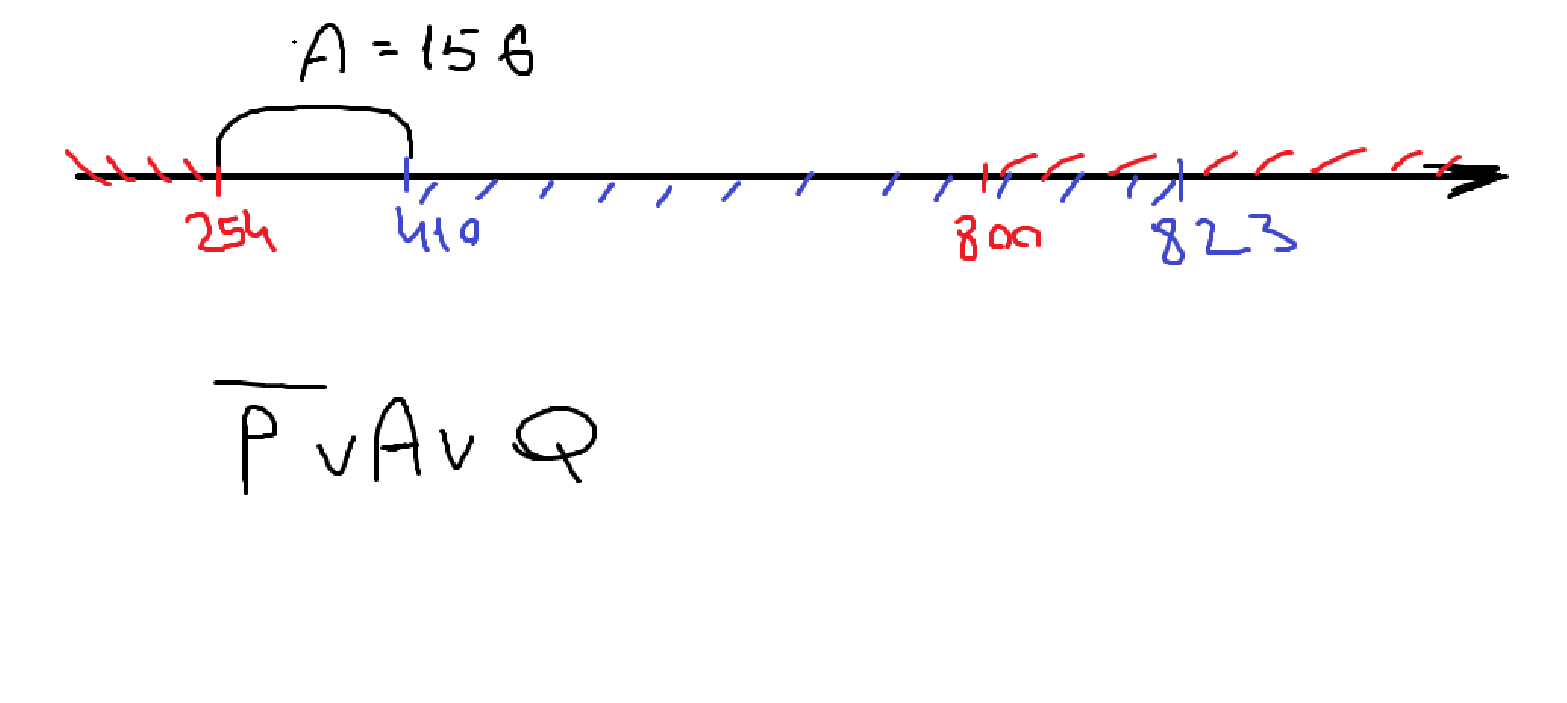 A = 156
254 410 800 823
P̅ ∨ A ∨ Q